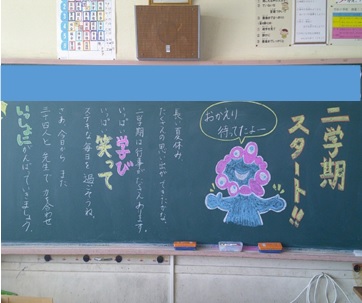 二学期
スタート!!
おかえり
待ってたよー
長い夏休み
たくさんの思い出ができたかな。
二学期は行事がたくさんあります。
いっぱい学び
いっぱい笑って
ステキな毎日を過ごそうね。
さあ、今日からまた
三十四人と先生で力を合わせ
いっしょにがんばっていきましょう。